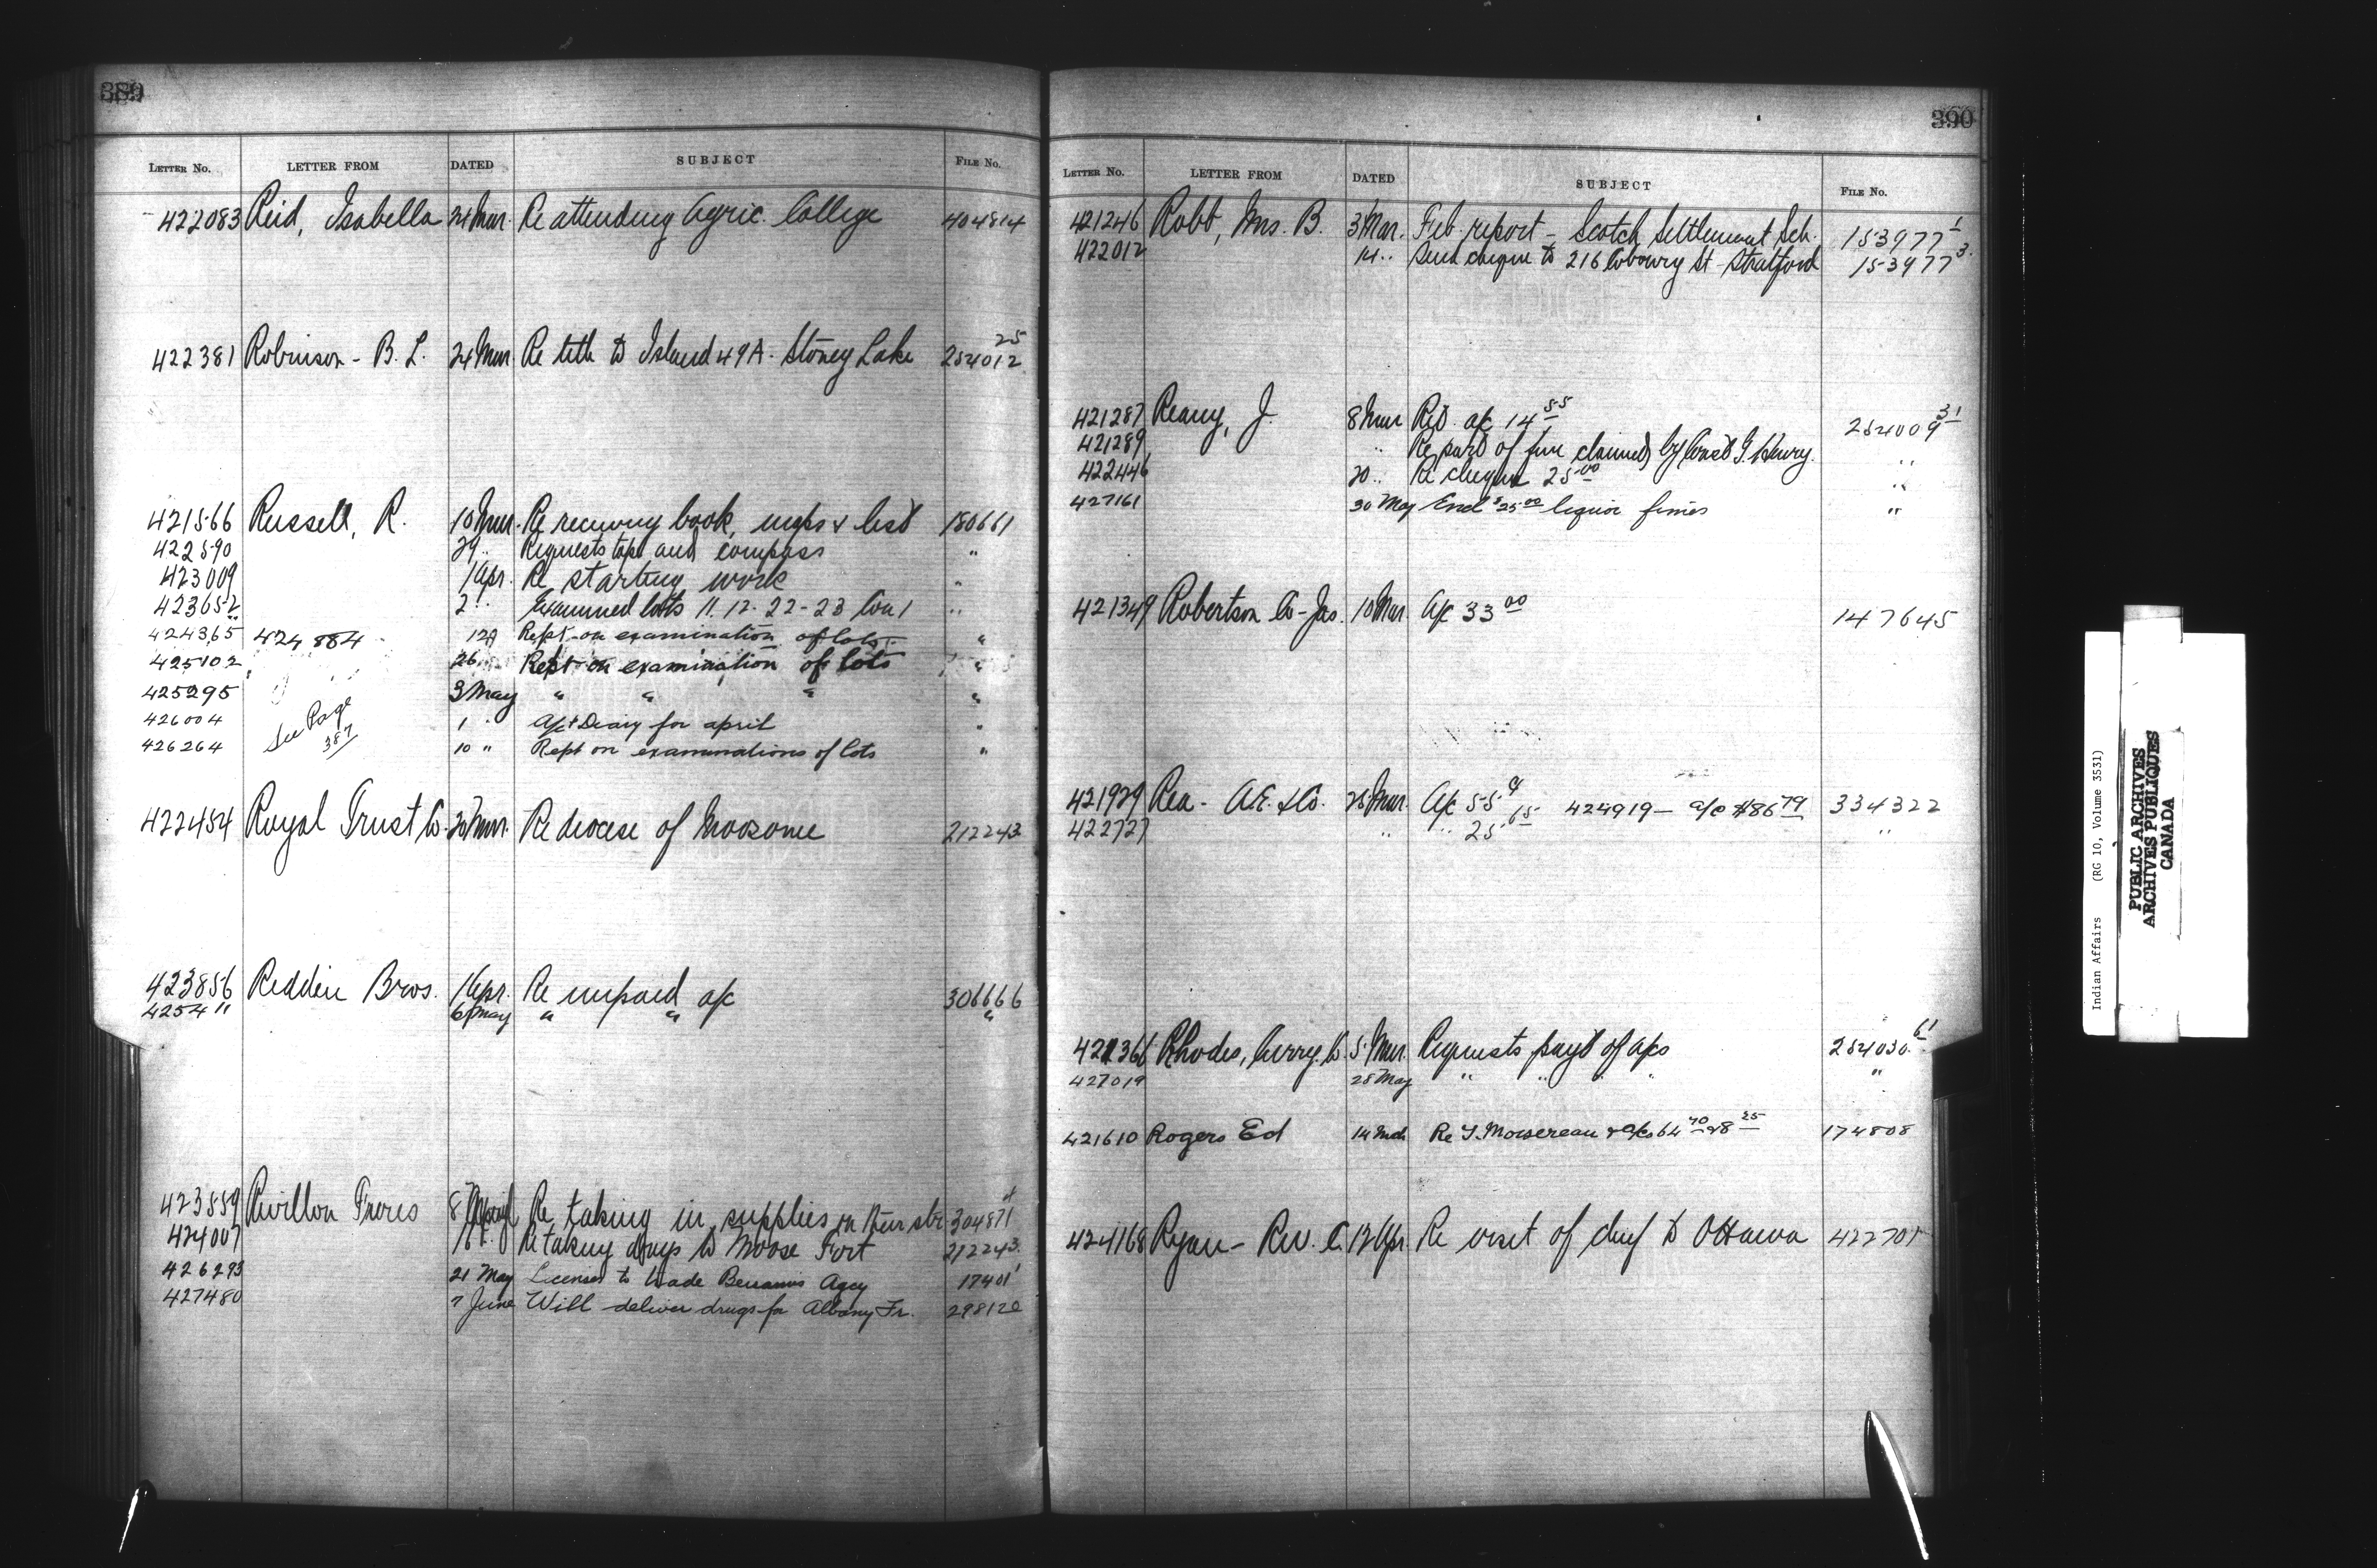 389
LETTER NO. LETTER FROM DATED SUBJECT FILE NO.
422083 Reid, Isabella 24 Mar. Re attending Agric. College 404814
422381 Robinson - B. L. 24 Mar. Re title to Island 49A. Stoney Lake 254012 25
421566 Russell, R. 10 Mar. Re recovery book, maps & list 180661
422590 29 .. Requests tape and compass "
423009 1 Apr. Re starting work "
423652 2 .. Examined lots 11. 12. 22-23 Con 1 ..
424365 424884 12 Rept on examination of lots "
425102 26 Rept on examination of lots "
425295 3 May " " " "
426004 1 " A/c & Diary for april "
426264 See Page 387 10 " Rept on examinations of lots "
422454 Royal Trust Co. 30 Mar. Re diocese of Moosonee 212243
423856 Reddin Bros. 1 Apr. Re unpaid a/c 306666
4254 " 6 May " " "
423559 Revillon Freres 8 April Re taking in supplies on their str. 304871
424007 Re taking drugs to Moose Fort 212243
426293 21 May Licenses to trade Bersamis Agcy 17401
427480 7 June Will deliver drugs for Albany Fr. 298120
390
LETTER NO. LETTER FROM DATED SUBJECT FILE NO.
421246 Robb, Mrs. B. 3 Mar. Feb. report - Scotch Settlement Sch. 153977 1
422012 14 .. Send cheque to 216 Cobourg St Stratford 153977 3
421287 Reany, J. 8 Mar Ret. a/c 14 55 254009 31
421289 .. Re part of fine claimed by Const G. Henry. "
422446 20 .. Re cheque 25 00 "
427161 30 May Encl $25 00 liquor fines "
421349 Robertson Co - Jas. 10 Mar. A/c 33 00 147645
421929 Rea - A.E. & Co. 25 Mar. A/c 55 9 424919 - a/c $86 79 334322
422727 .. .. 25 65 "
421366 Rhodes, Curry, Co. 5 Mar. Requests payt of a/cs 254030 61
427019 28 May " " " " "
421610 Rogers Ed 14 Mch Re & a/cs 64 70 & 8 25 174808
424168 Ryan - Rev. C. 12 Apr. Re visit of chief to Ottawa 422701
Indian Affairs (RG 10, Volume 3531)
PUBLIC ARCHIVES
ARCHIVES PUBLIQUES
CANADA